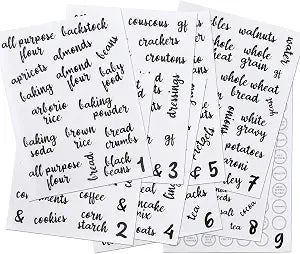 all purpose
flour
backstock
apricots
almonds
beans
baking
almond
flour
baby
food
arborio
rice
baking
powder
baking
soda
brown
rice
bread
crumbs
all purpose
flour
bread
black
beans
1
couscous
gf
crackers
croutons
dressings
gf
& 3
& 5
walnuts
whole
grain
whole
whole wheat
bread
onion
white
gravy
potatoes
7
9
coffee
&
& cookies
corn
starch
2
4
mix
oats
6
salt
cocoa
tea
8